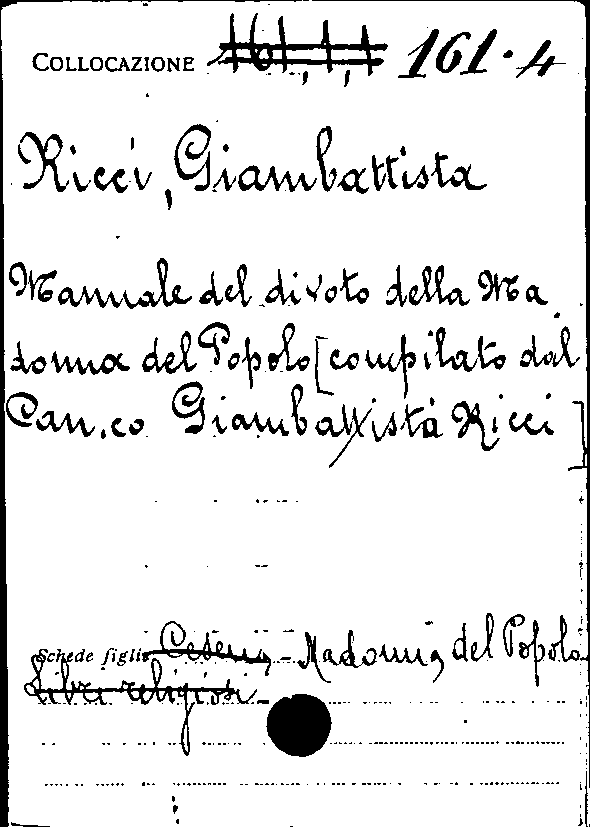 COLLOCAZIONE 161,1,1 161·4
Ricci, Giambattista
Manuale del divoto della Ma
donna del Popolo [compilato dal
Can.co Giambattista Ricci]
Schede figlie Cesena, - Madonna del Popolo
Libri religiosi -